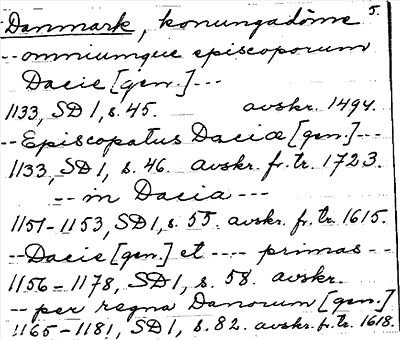 Danmark, konungadöme 5.
-- omniumque episcoporum
Dacie [gen.] ---
1133, SD 1, s. 45. avskr. 1494.
-- Episcopatus Daciæ [gen.] ---
1133, SD 1, s. 46. avskr. fr. tr. 1723.
-- in Dacia ---
1151-1153, SD 1, s. 55. avskr. fr. tr. 1615.
-- Dacie [gen.] et ---- primas --
1156-1178, SD 1, s. 58. avskr.
-- per regna Danorum [gen.]
1165-1181, SD 1, s. 82. avskr. fr. tr. 1618.